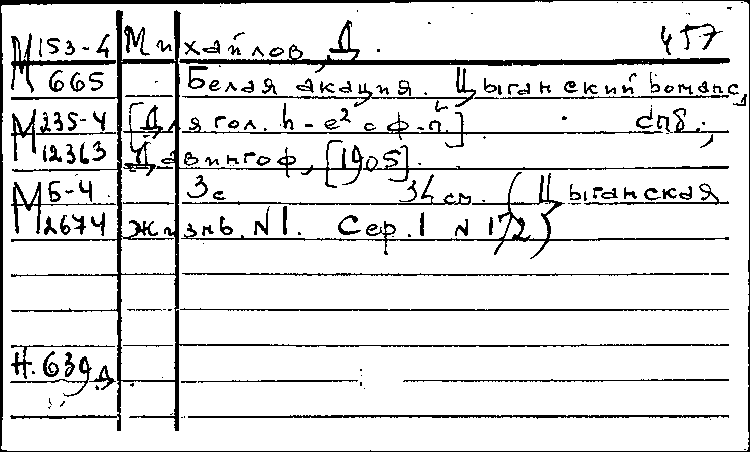 М 153-4 Михайлов, Д. 457
665 Белая акация. Цыганский романс,
М 235-4 [Для гол. h-e² с ф-п.] СПб.,
12363 Давингоф, [1905].
М Б-4 3с 34 см. (Цыганская
2674 жизнь. N 1. Сер. 1 N 172)
Н. 639 Д